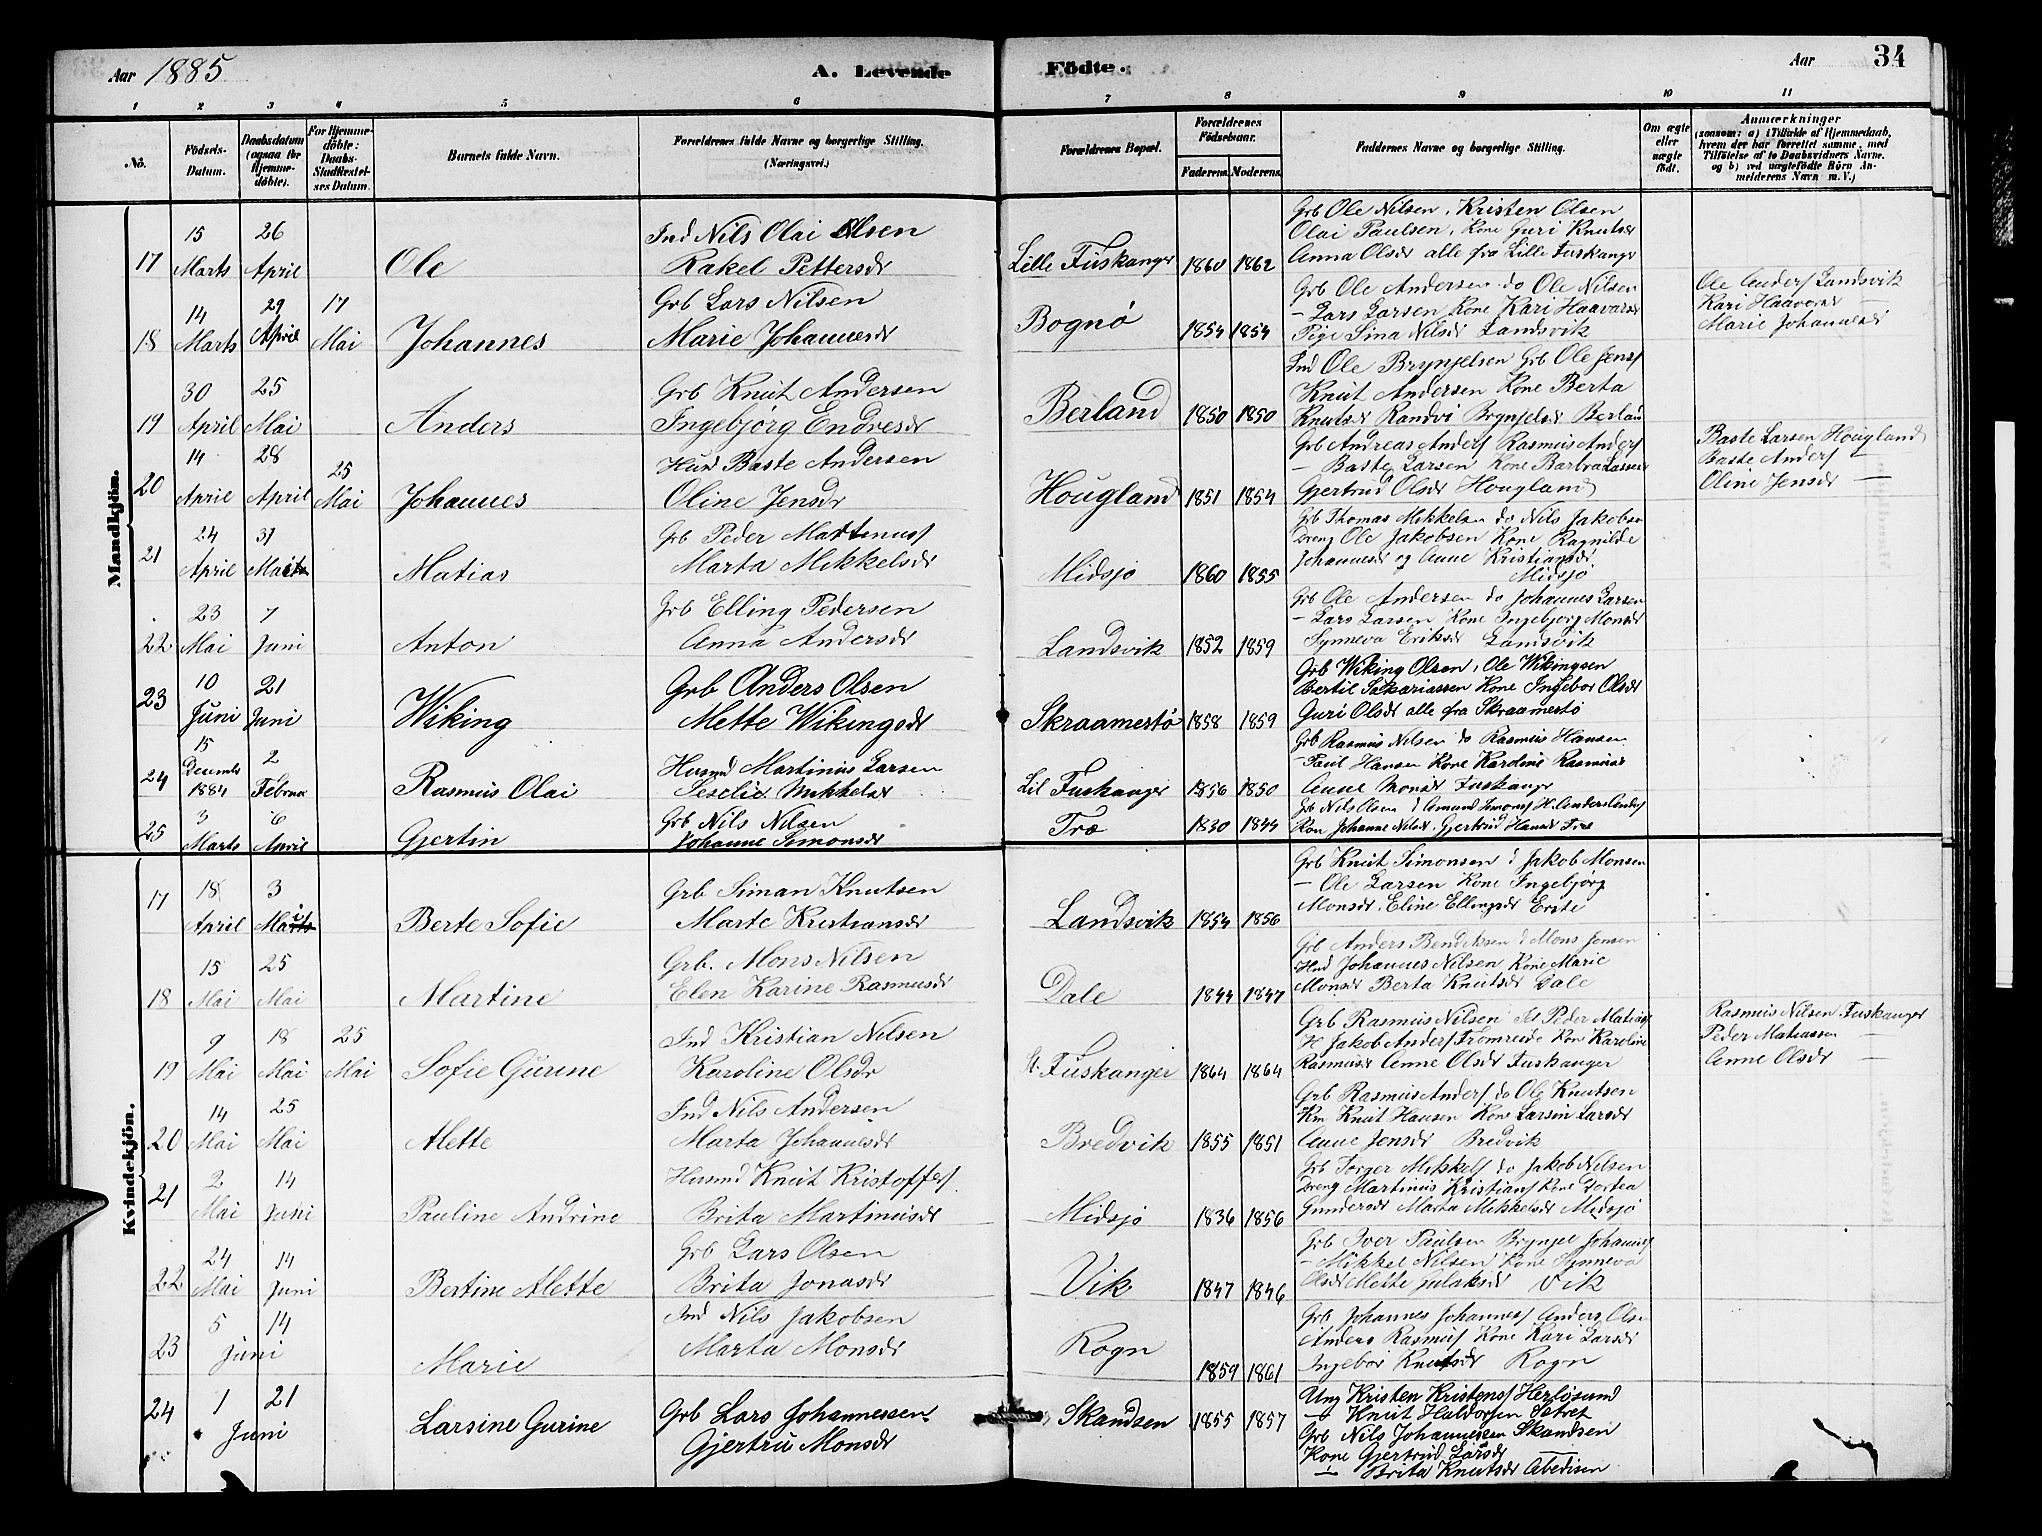 Aar 1885
A. Levende Födte.
Aar 34
1 2 3 4 5 6 7 8 9 10 11
No.
Födsels-Datum.
Daabsdatum (ogsaa for Hjemmedöbte).
For Hjemmedöbte: Daabs-Stadfæstelses Datum.
Barnets fulde Navn.
Forældrenes fulde Navne og borgerlige Stilling. (Næringsvei.)
Forældrenes Bopæl.
Forældrenes Födselsaar.
Faderens. Moderens.
Faddernes Navne og borgerlige Stilling.
Om ægte eller uægte födt.
Anmærkninger
(saasom: a) i Tilfælde af Hjemmedaab, hvem der har forrettet samme, med Tilföielse af to Daabsvidners Navne. og b) ved uægtefödte Börn Anmelderens Navn m. V.)
Mandkjön.
17 15 Marts 26 April Ole
Ind Nils Olai Olsen
Rakel Pettersdr
Lille Fuskanger 1860 1862
Grb Ole Nilsen, Kristen Olsen
Olai Paulsen, Kone Guri Knutsdr
Anna Olsdr alle fra Lille Fuskangr
18 14 Marts 29 April 17 Mai Johannes
Grb Lars Nilsen
Marie Johannesdr
Bognø 1854 1854
Grb Ole Andersen do Ole Nilsen
- Lars Larsen Kone Kari Haavarsdr
Pige Sina Nilsdr Landsvik
Ole Anders Landsvik
Kari Haavarsdr —
Marie Johannesdr
19 30 April 25 Mai Anders
Grb Knut Andersen
Ingebjørg Endresdr
Berland 1850 1850
Ind Ole Brynjelsen Grb Ole Jens
Knut Andersen Kone Berta
Knutsdr Randvi Brynjelsdr Berland
20 14 April 28 April 25 Mai Johannes
Husd Baste Andersen
Oline Jensdr
Hougland 1851 1854
Grb Andreas Anders Rasmus Anders
- Baste Larsen Kone Barbra Lassesdr
Gjertrud Olsdr Hougland
Baste Larsen Hougland
Baste Anders —
Oline Jensdr —
21 24 April 31 Mai Matias
Grb Peder Martinus
Marta Mikkelsdr
Midsjø 1860 1855
Grb Thomas Mikkelsen do Nils Jakobsen
Dreng Ole Jakobsen Kone Ragnilde
Johannesdr og Anne Kristiansdr
Midsjø
22 23 Mai 7 Juni Anton
Grb Elling Pedersen
Anna Andersdr
Landsvik 1852 1859
Grb Ole Andersen do Johannes Larsen
- Lars Larsen Kone Ingebjorg Monsdr
Synneva Eriksdr Landsvik
23 10 Juni 21 Juni Wiking
Grb Anders Olsen
Mette Wikingsdr
Skraamestø 1858 1859
Grb Wiking Olsen, Ole Wikingsen
Bertil Sakariassen Kone Ingebor Olsdr
Guri Olsdr alle fra Skraamestø
24 15 Decembr 1884 2 Februa Rasmus Olai
Husmd Martinus Larsen
Seselie Mikkelsdr
Lil Fuskanger 1856 1850
Grb Rasmus Nilsen do Rasmus Hansen
- Paul Hansen Kone Karoline Rasmusdr
Anne Monsdr Fuskanger
25 3 Marts 6 April Gjertin
Grb Nils Nilsen
Johanne Simonsdr
Træ 1830 1844
Grb Nils Olsen d Amund Simons H. Anders Anders
Kon Johanne Nilsdr. Gjertrud Hansdr Træ
Kvindekjön.
17 18 April 3 Mai Berte Sofie
Grb Siman Knutsen
Marte Kristiansdr
Landsvik 1854 1856
Grb Knut Simonsen d Jakob Monsen
- Ole Larsen Kone Ingebjørg
Monsdr. Eline Ellingsdr Erste
18 15 Mai 25 Mai Martine
Grb. Mons Nilsen
Elen Karine Rasmusdr
Dale 1844 1847
Grb Anders Bendiksen d Mons Jensen
Hmd Johannes Nilsen Kone Marie
Monsdr Berta Knutsdr Dale
19 9 Mai 18 Mai 25 Mai Sofie Gurine
Ind Kristian Nilsen
Karoline Olsdr
St. Fuskanger 1864 1864
Grb Rasmus Nilsen Peder Matias
H Jakob Anders Fromreide Kon Karoline
Rasmusdr Anne Olsdr Fuskanger
Rasmus Nilsen Fuskanger
Peder Matiassen —
Anne Olsdr —
20 14 Mai 25 Mai Alette
Ind Nils Andersen
Marta Johannesdr
Bredvik 1855 1851
Grb Rasmus Anders do Ole Knutsen
Km Knut Hansen Kone Larsin Larsdr
Anne Jensdr Bredvik
21 2 Mai 14 Juni Pauline Andrine
Husmd Knut Kristoffers
Brita Martinusdr
Midsjø 1836 1856
Grb Torger Mikkels do Jakob Nilsen
Dreng Martinus Kristians Kone Dortea
Gundersdr Marta Mikkelsdr Midsjø
22 24 Mai 14 Juni Bertine Alette
Grb Lars Olsen
Brita Jonasdr
Vik 1847 1846
Grb Iver Paulsen Brynjel Johannes
- Mikkel Nilsen Kone Synneva
Olsdr Mette Vik
23 5 14 Juni Marie
Ind Nils Jakobsen
Marta Monsdr
Rogn 1859 1861
Grb Johannes Johannes Anders Olse
Anders Rasmus Kone Kari Larsdr
Ingebor Knutsdr Rogn
24 1 21 Juni Larsine Gurine
Grb Lars Johannessen
Gjertru Monsdr
Skandsen 1855 1857
Ung Kristen Kristens Herløsund
- Knut Haldorsen Sætret
Grb Nils Johannessen Skandsen
Kone Gjertrud Larsdr
- Brita Knutsdr Abedisen